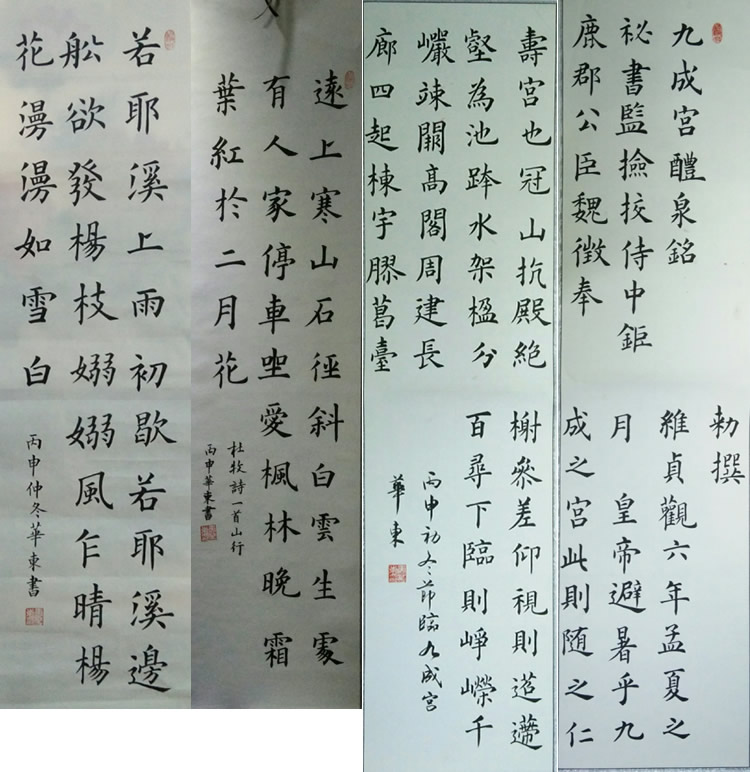 九成宮醴泉銘
祕書監撿挍侍中鉅
鹿郡公臣魏徵奉
勑撰
維貞觀六年孟夏之
月 皇帝避暑乎九
成之宮此則随之仁
壽宮也冠山抗殿絶
壑為池跨水架楹分
巖竦闕高閣周建長
廊四起棟宇膠葛臺
榭參差仰視則迢遰
百尋下臨則崢嶸千
丙申初冬節臨九成宮
華東
遠上寒山石徑斜白雲生處
有人家停車坐愛楓林晚霜
葉紅於二月花
杜牧詩一首山行
丙申華東書
若耶溪上雨初歇若耶溪邊
舩欲發楊枝嫋嫋風乍晴楊
花漫漫如雪白
丙申仲冬華東書